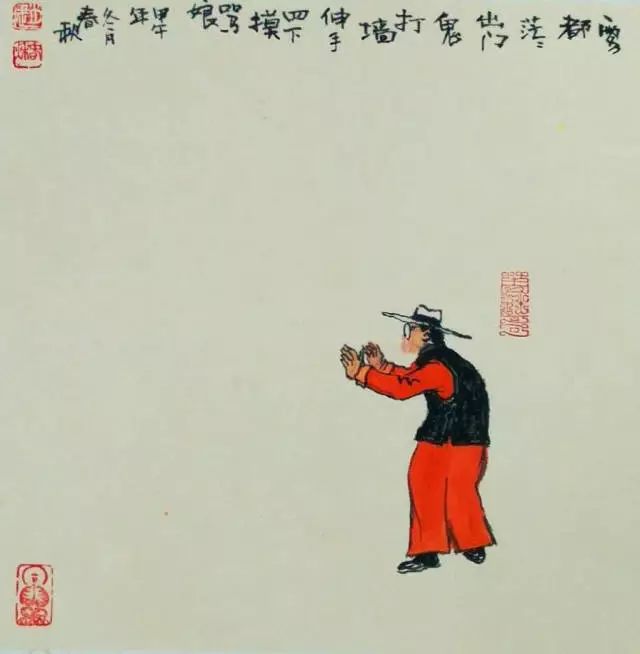 雾都茫々出门鬼打墙伸手四下摸骂娘甲午年冬月春秋